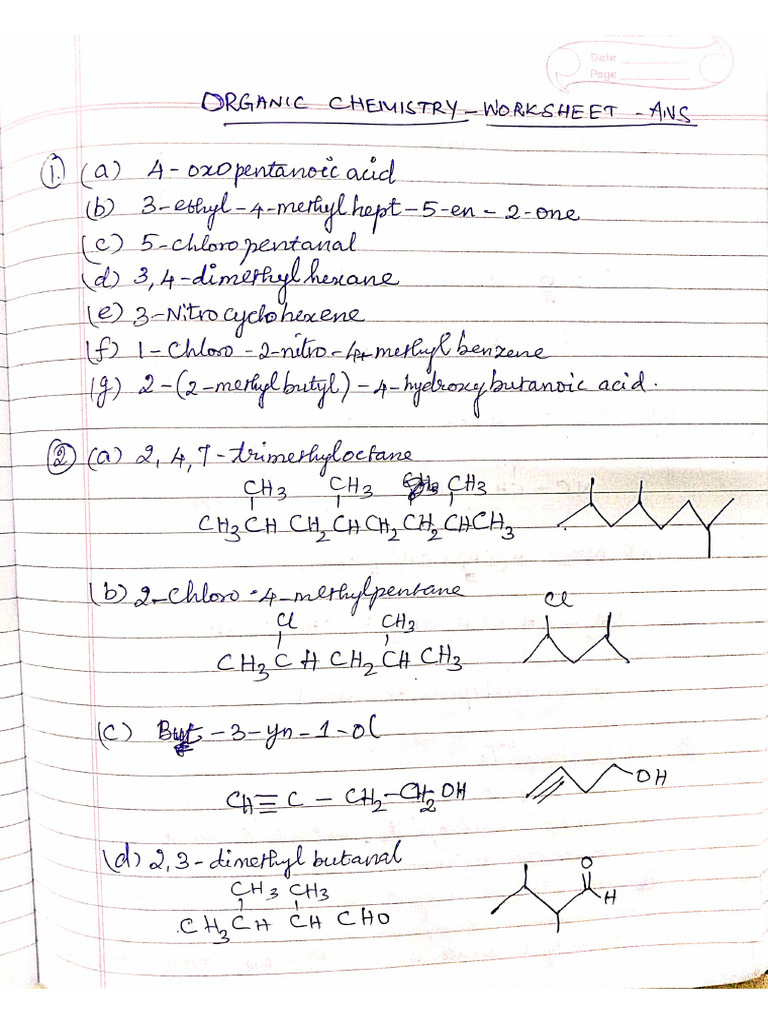 Date
Page
ORGANIC CHEMISTRY - WORKSHEET - ANS
1. (a) 4-oxopentanoic acid
(b) 3-ethyl-4-methylhept-5-en-2-one
(c) 5-chloropentanal
(d) 3,4-dimethylhexane
(e) 3-Nitrocyclohexene
(f) 1-Chloro-2-nitro-4-methylbenzene
(g) 2-(2-methylbutyl)-4-hydroxybutanoic acid.
2 (a) 2,4,7-trimethyloctane
CH3 CH3 CH3
CH3CH CH2CHCH2CH2CHCH3
(b) 2-Chloro-4-methylpentane
Cl CH3 Cl
CH3CH CH2CH CH3
(c) But-3-yn-1-ol
CH≡C-CH2-CH2OH OH
(d) 2,3-dimethyl butanal
CH3 CH3 O
CH3CH CH CHO H